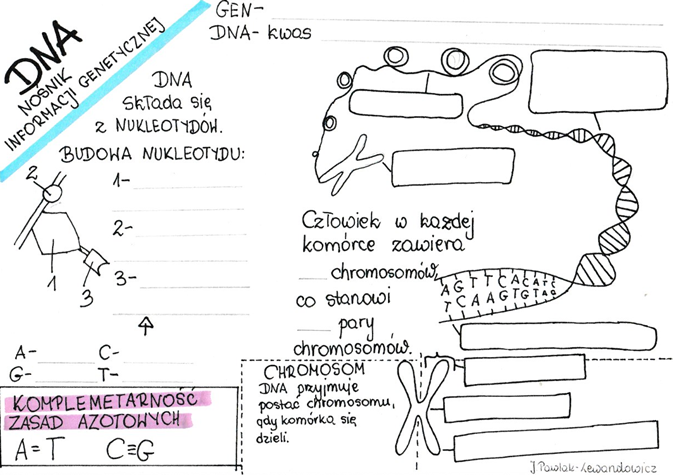 DNA
NOŚNIK
INFORMACJI GENETYCZNEJ
GEN-
DNA- kwas
DNA
składa się
z NUKLEOTYDÓW.
BUDOWA NUKLEOTYDU:
1-
2-
3-
2
1
3
A- C-
G- T-
KOMPLEMETARNOŚĆ
ZASAD AZOTOWYCH
A=T C≡G
Człowiek w każdej
komórce zawiera
chromosomów,
co stanowi
pary
chromosomów.
AGTTCACATC
TCAAGTGTAG
CHROMOSOM
DNA przyjmuje
postać chromosomu,
gdy komórka się
dzieli.
J Pawlak-Lewandowicz